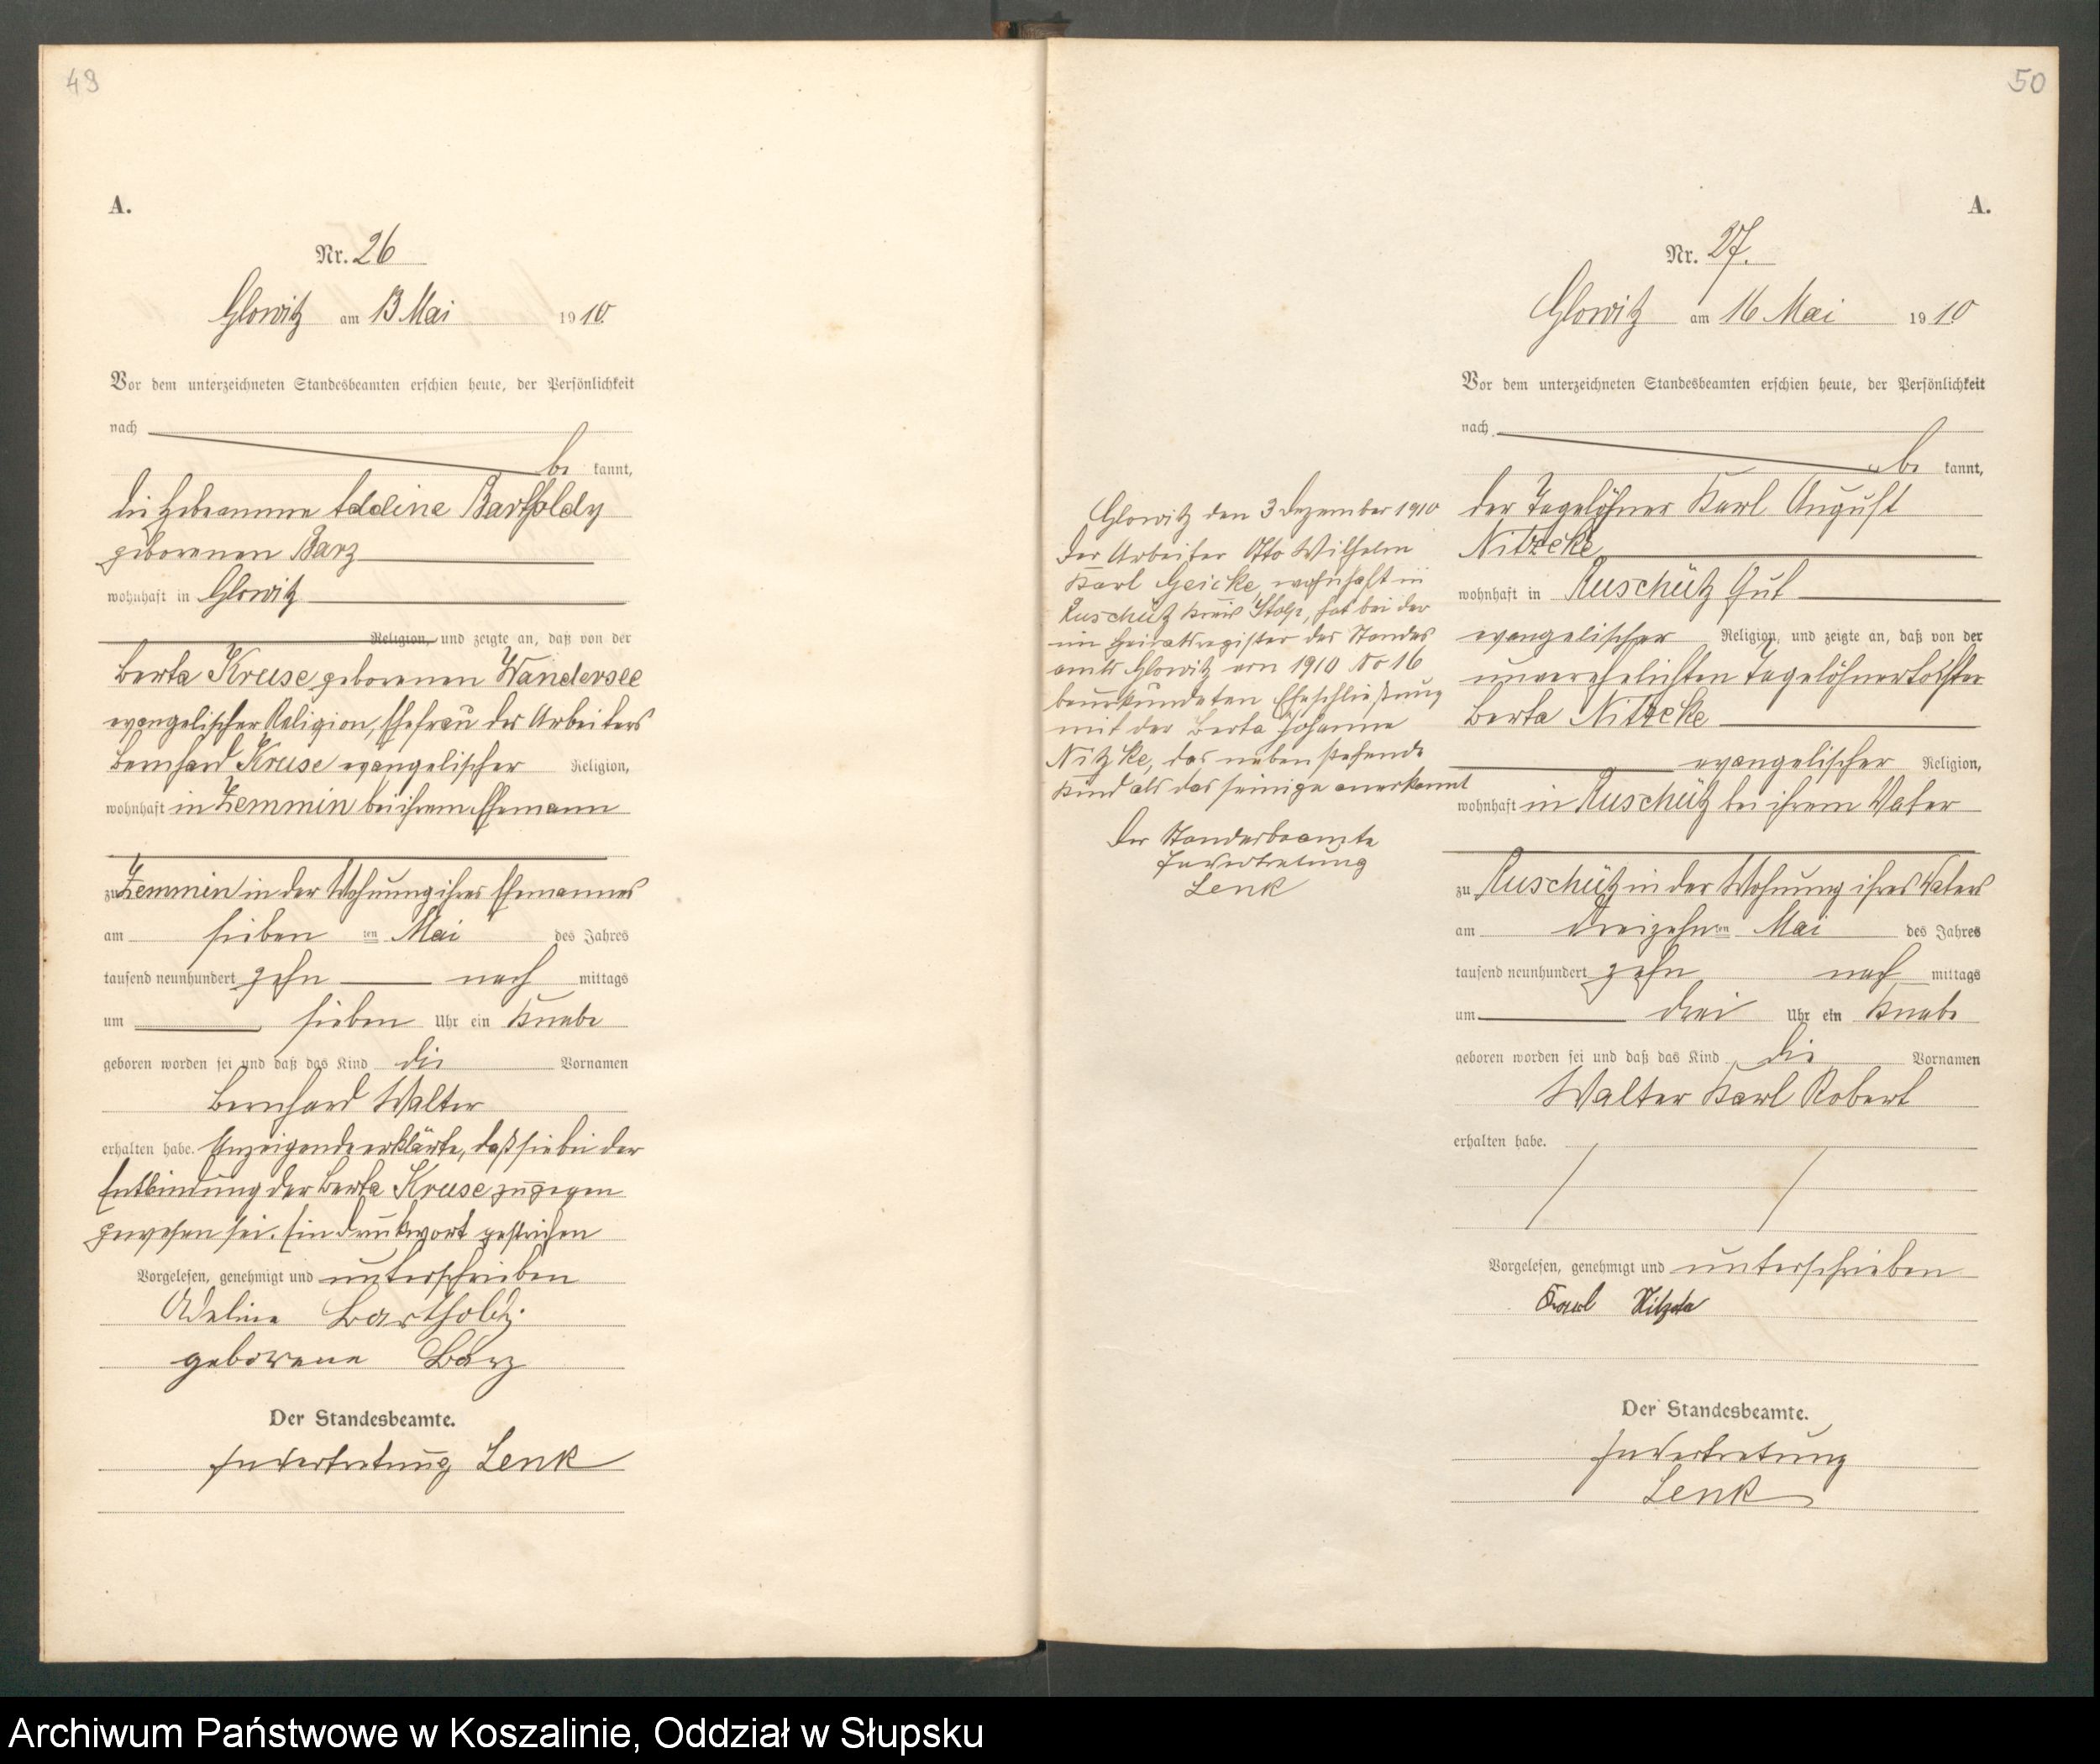 49
A.
Nr. 26
Glowitz am 13 Mai 1910.
Vor dem unterzeichneten Standesbeamten erschien heute, der Persönlichkeit
nach
be kannt,
die Hebeamme Adeline Bartholdy
geborenen Barz
wohnhaft in Glowitz
Religion, und zeigte an, daß von der
Berta Kruse geborenen Wandersee
evangelischer Religion, Ehefrau des Arbeiters
Bernhard Kruse evangelischer Religion,
wohnhaft in Zemmin bei ihrem Ehemann
zu Zemmin in der Wohnung ihres Ehemannes
am sieben ten Mai des Jahres
tausend neunhundert zehn nach mittags
um sieben Uhr ein Knabe
geboren worden sei und daß das Kind die Vornamen
Bernhard Walter
erhalten habe. Anzeigende erklärte, daß sie bei der
Entbindung der Berta Kruse zugegen
gewesen sei. Ein Druckwort gestrichen
Vorgelesen, genehmigt und unterschrieben
Adeline Bartholdy
geborene Barz
Der Standesbeamte.
In Vertretung Lenk
50
A.
Nr. 27.
Glowitz am 16 Mai 1910
Vor dem unterzeichneten Standesbeamten erschien heute, der Persönlichkeit
nach
be kannt,
der Tagelöhner Karl August
Nitzcke
wohnhaft in Ruschütz Gut
evangelischer Religion, und zeigte an, daß von der
unverehelichten Tagelöhnertochter
Berta Nitzcke
evangelischer Religion,
wohnhaft in Ruschütz bei ihrem Vater
zu Ruschütz in der Wohnung ihres Vaters
am dreizehn ten Mai des Jahres
tausend neunhundert zehn nach mittags
um drei Uhr ein Knabe
geboren worden sei und daß das Kind die Vornamen
Walter Karl Robert
erhalten habe.
Vorgelesen, genehmigt und unterschrieben
Karl
Der Standesbeamte.
In Vertretung
Lenk
Glowitz den 3 Dezember 1910
Der Arbeiter Otto Wilhelm
Karl Geicke, wohnhaft in
Ruschütz Kreis Stolp, hat bei der
im Heiratsregister des Standes
amts Glowitz von 1910 No 16
beurkundeten Eheschließung
mit der Berta Johanne
Nitzke, das nebenstehende
Kind als das seinige anerkannt
Der Standesbeamte
In Vertretung
Lenk
Archiwum Państwowe w Koszalinie, Oddział w Słupsku